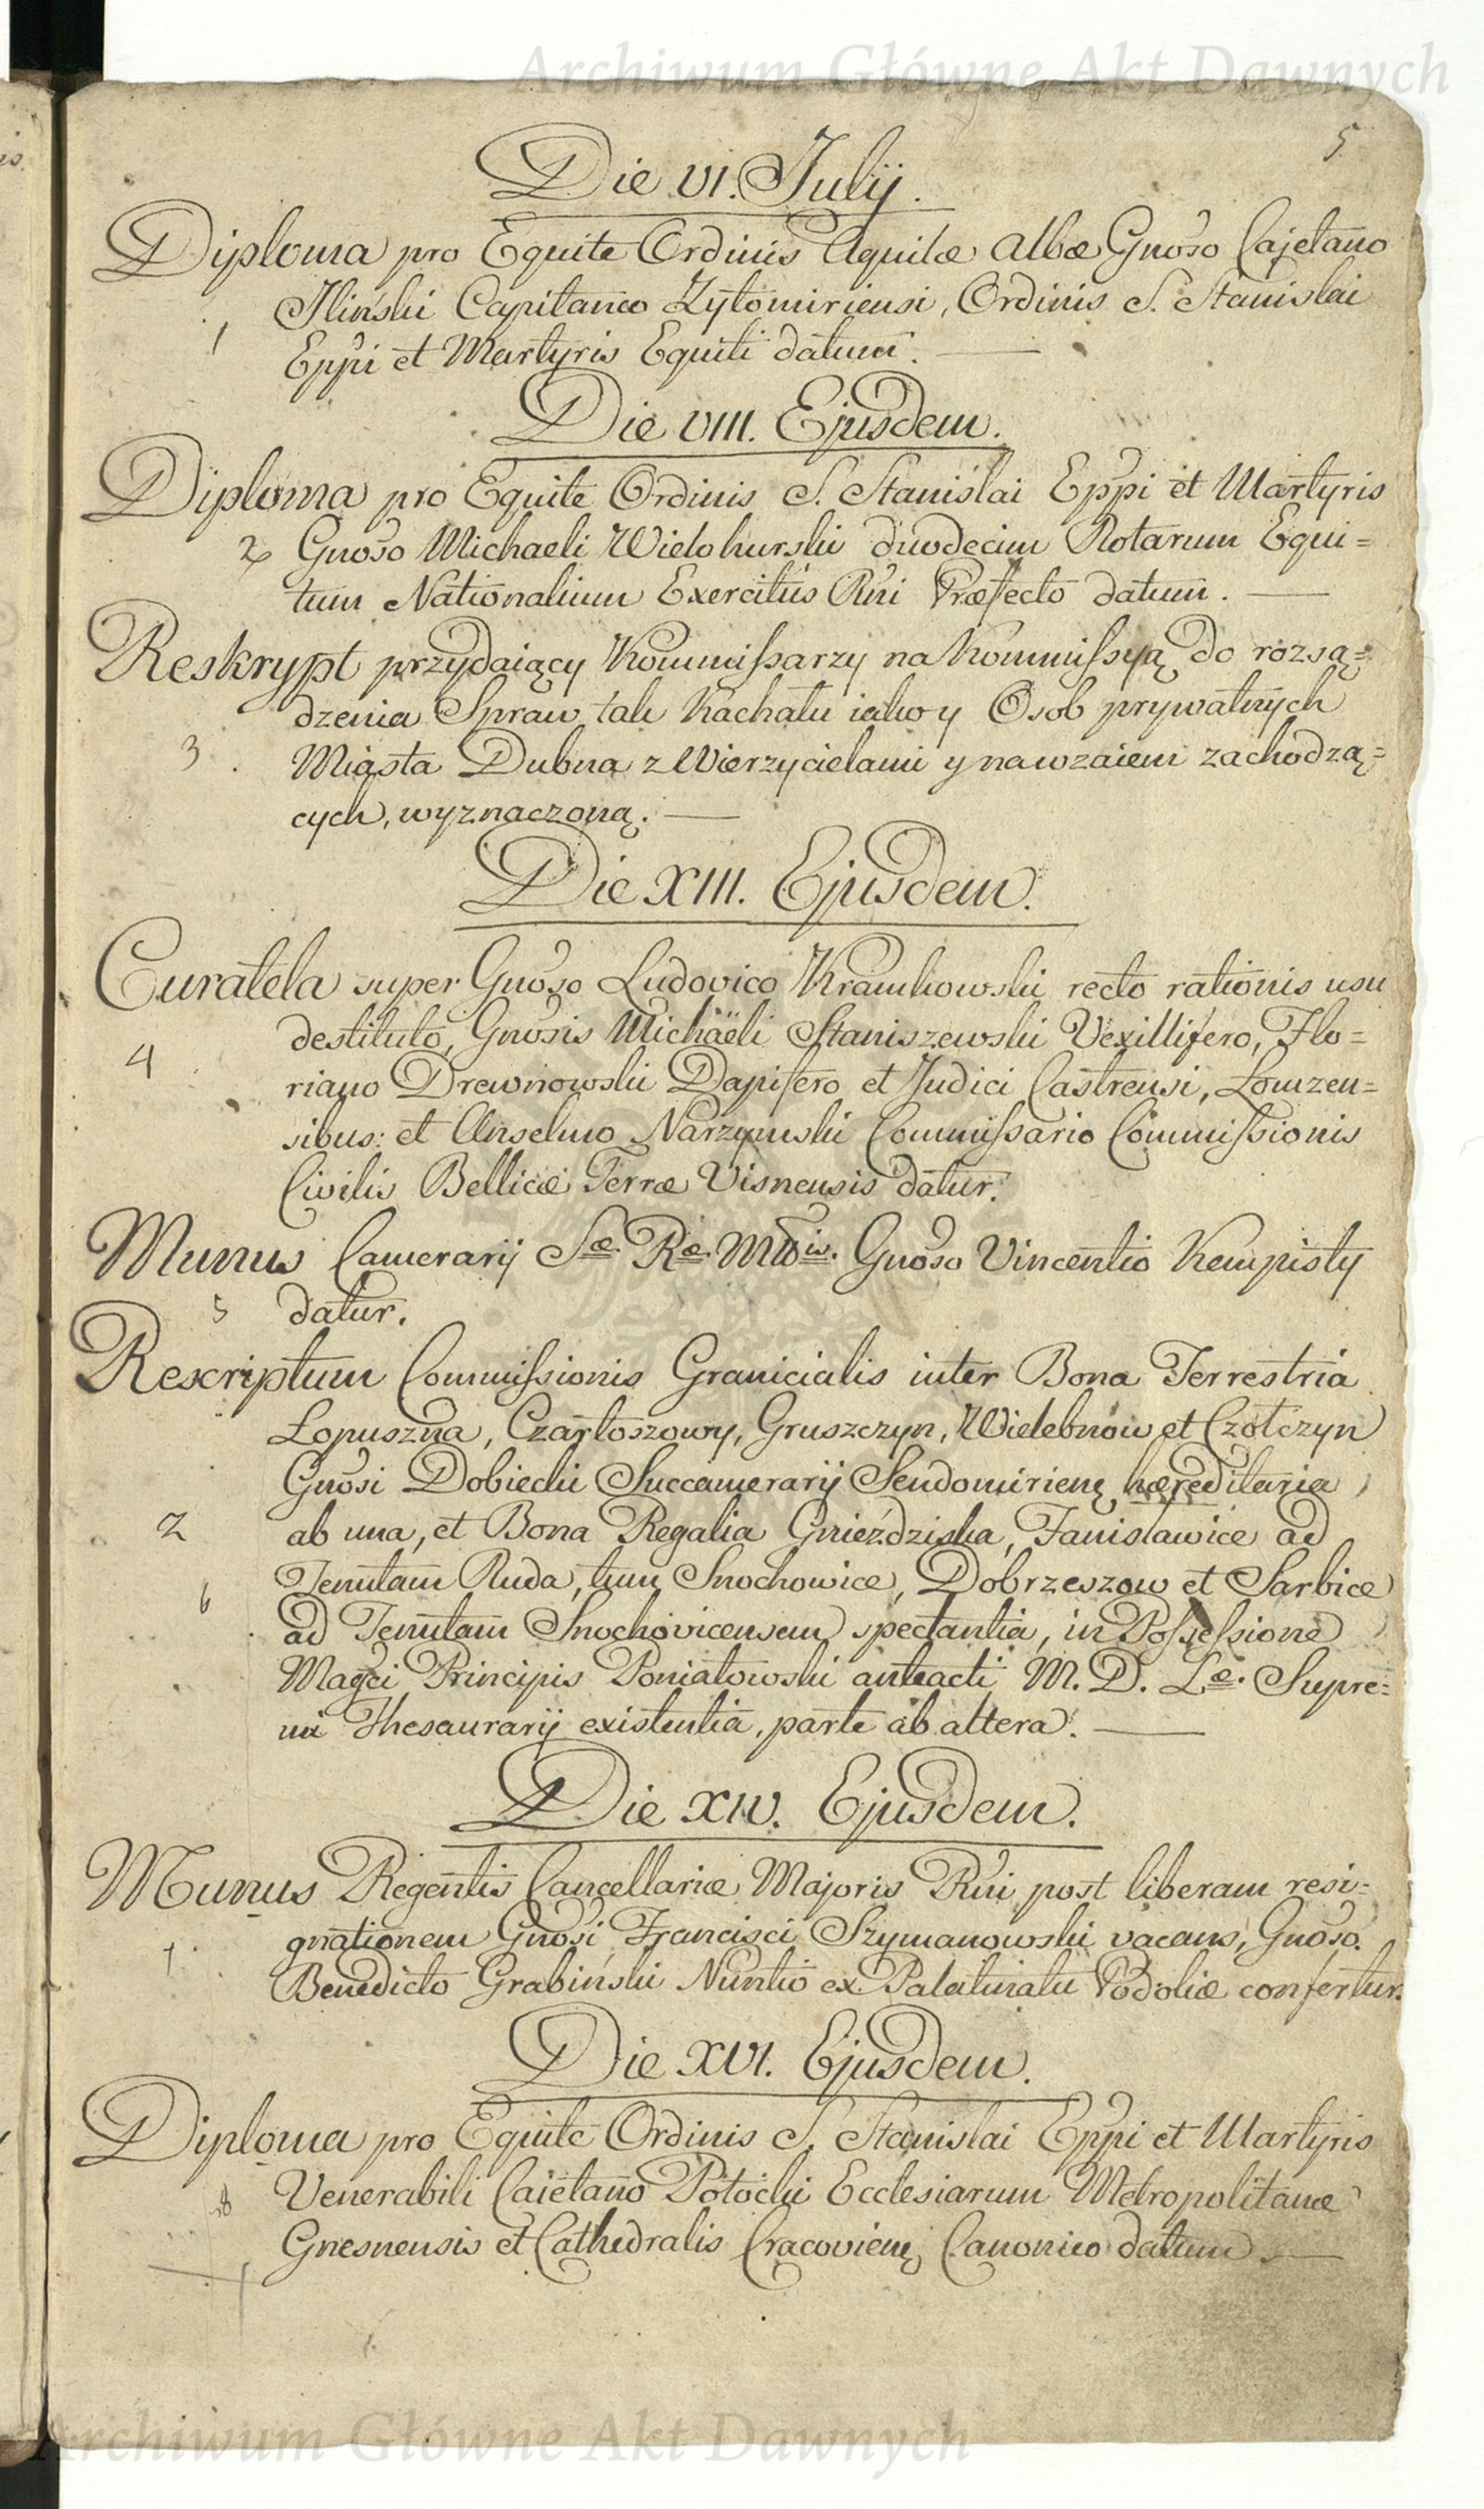 Archiwum Główne Akt Dawnych
5
Die VI. Julij.
Diploma pro Equite Ordinis Aquilæ Albæ Gnoso Cajetano
Ilinski Capitaneo Zytomiriensi, Ordinis S. Stanislai
1
Eppi et Martyris Equiti datum.
Die VIII. Ejusdem.
Diploma pro Equite Ordinis S. Stanislai Eppi et Martyris
2 Gnoso Michaeli Wielohurski duodecim Rotarum Equi=
tum Nationalium Exercitus Rni Præfecto datum.
Reskrypt przydaiący Kommissarzy na Kommissyą do rozsą=
dzenia Spraw tak Kachału iako y Osob prywatnych
3. Miasta Dubna z Wierzycielami y nawzaiem zachodzą=
cych, wyznaczoną.
Die XIII. Ejusdem.
Curatela super Gnoso Ludovico Kramkowski recto rationis usu
destituto, Gnosis Michaëli Staniszewski Vexillifero, Flo=
4
riano Drewnowski Dapifero et Judici Castrensi, Łomzen=
sibus: et Anselmo Narzymski Commissario Commissionis
Civilis Bellicæ Terræ Visnensis datur.
Munus Camerarij Sæ Ræ Mttis. Gnoso Vincentio Kempisty
5 datur.
Rescriptum Commissionis Granicialis inter Bona Terrestria
Łopuszna, Czartoszowy, Gruszczyn, Wielebnow et Czołczyn
Gnosi Dobiecki Succamerarij Sendomirienę hæreditaria
2 ab una, et Bona Regalia Gnieździska, Fanisławice ad
Tenutam Ruda, tum Snochowice, Dobrzeszow et Sarbice
6
ad Tenutam Snochovicensem spectantia, in Possessione
Magci Principis Poniatowski anteacti M. D. Læ. Supre=
mi Thesaurarij existentia, parte ab altera.
Die XIV. Ejusdem.
Munus Regentis Cancellariæ Majoris Rni post liberam resi=
gnationem Gnosi Francisci Szymanowski vacans, Gnoso
Benedicto Grabiński Nuntio ex Palatinatu Podoliæ confertur.
Die XVI. Ejusdem.
Diploma pro Equite Ordinis S. Stanislai Eppi et Martyris
Venerabili Caietano Potocki Ecclesiarum Metropolitanæ
Gnesnensis et Cathedralis Cracovienę Canonico datum.
Archiwum Główne Akt Dawnych